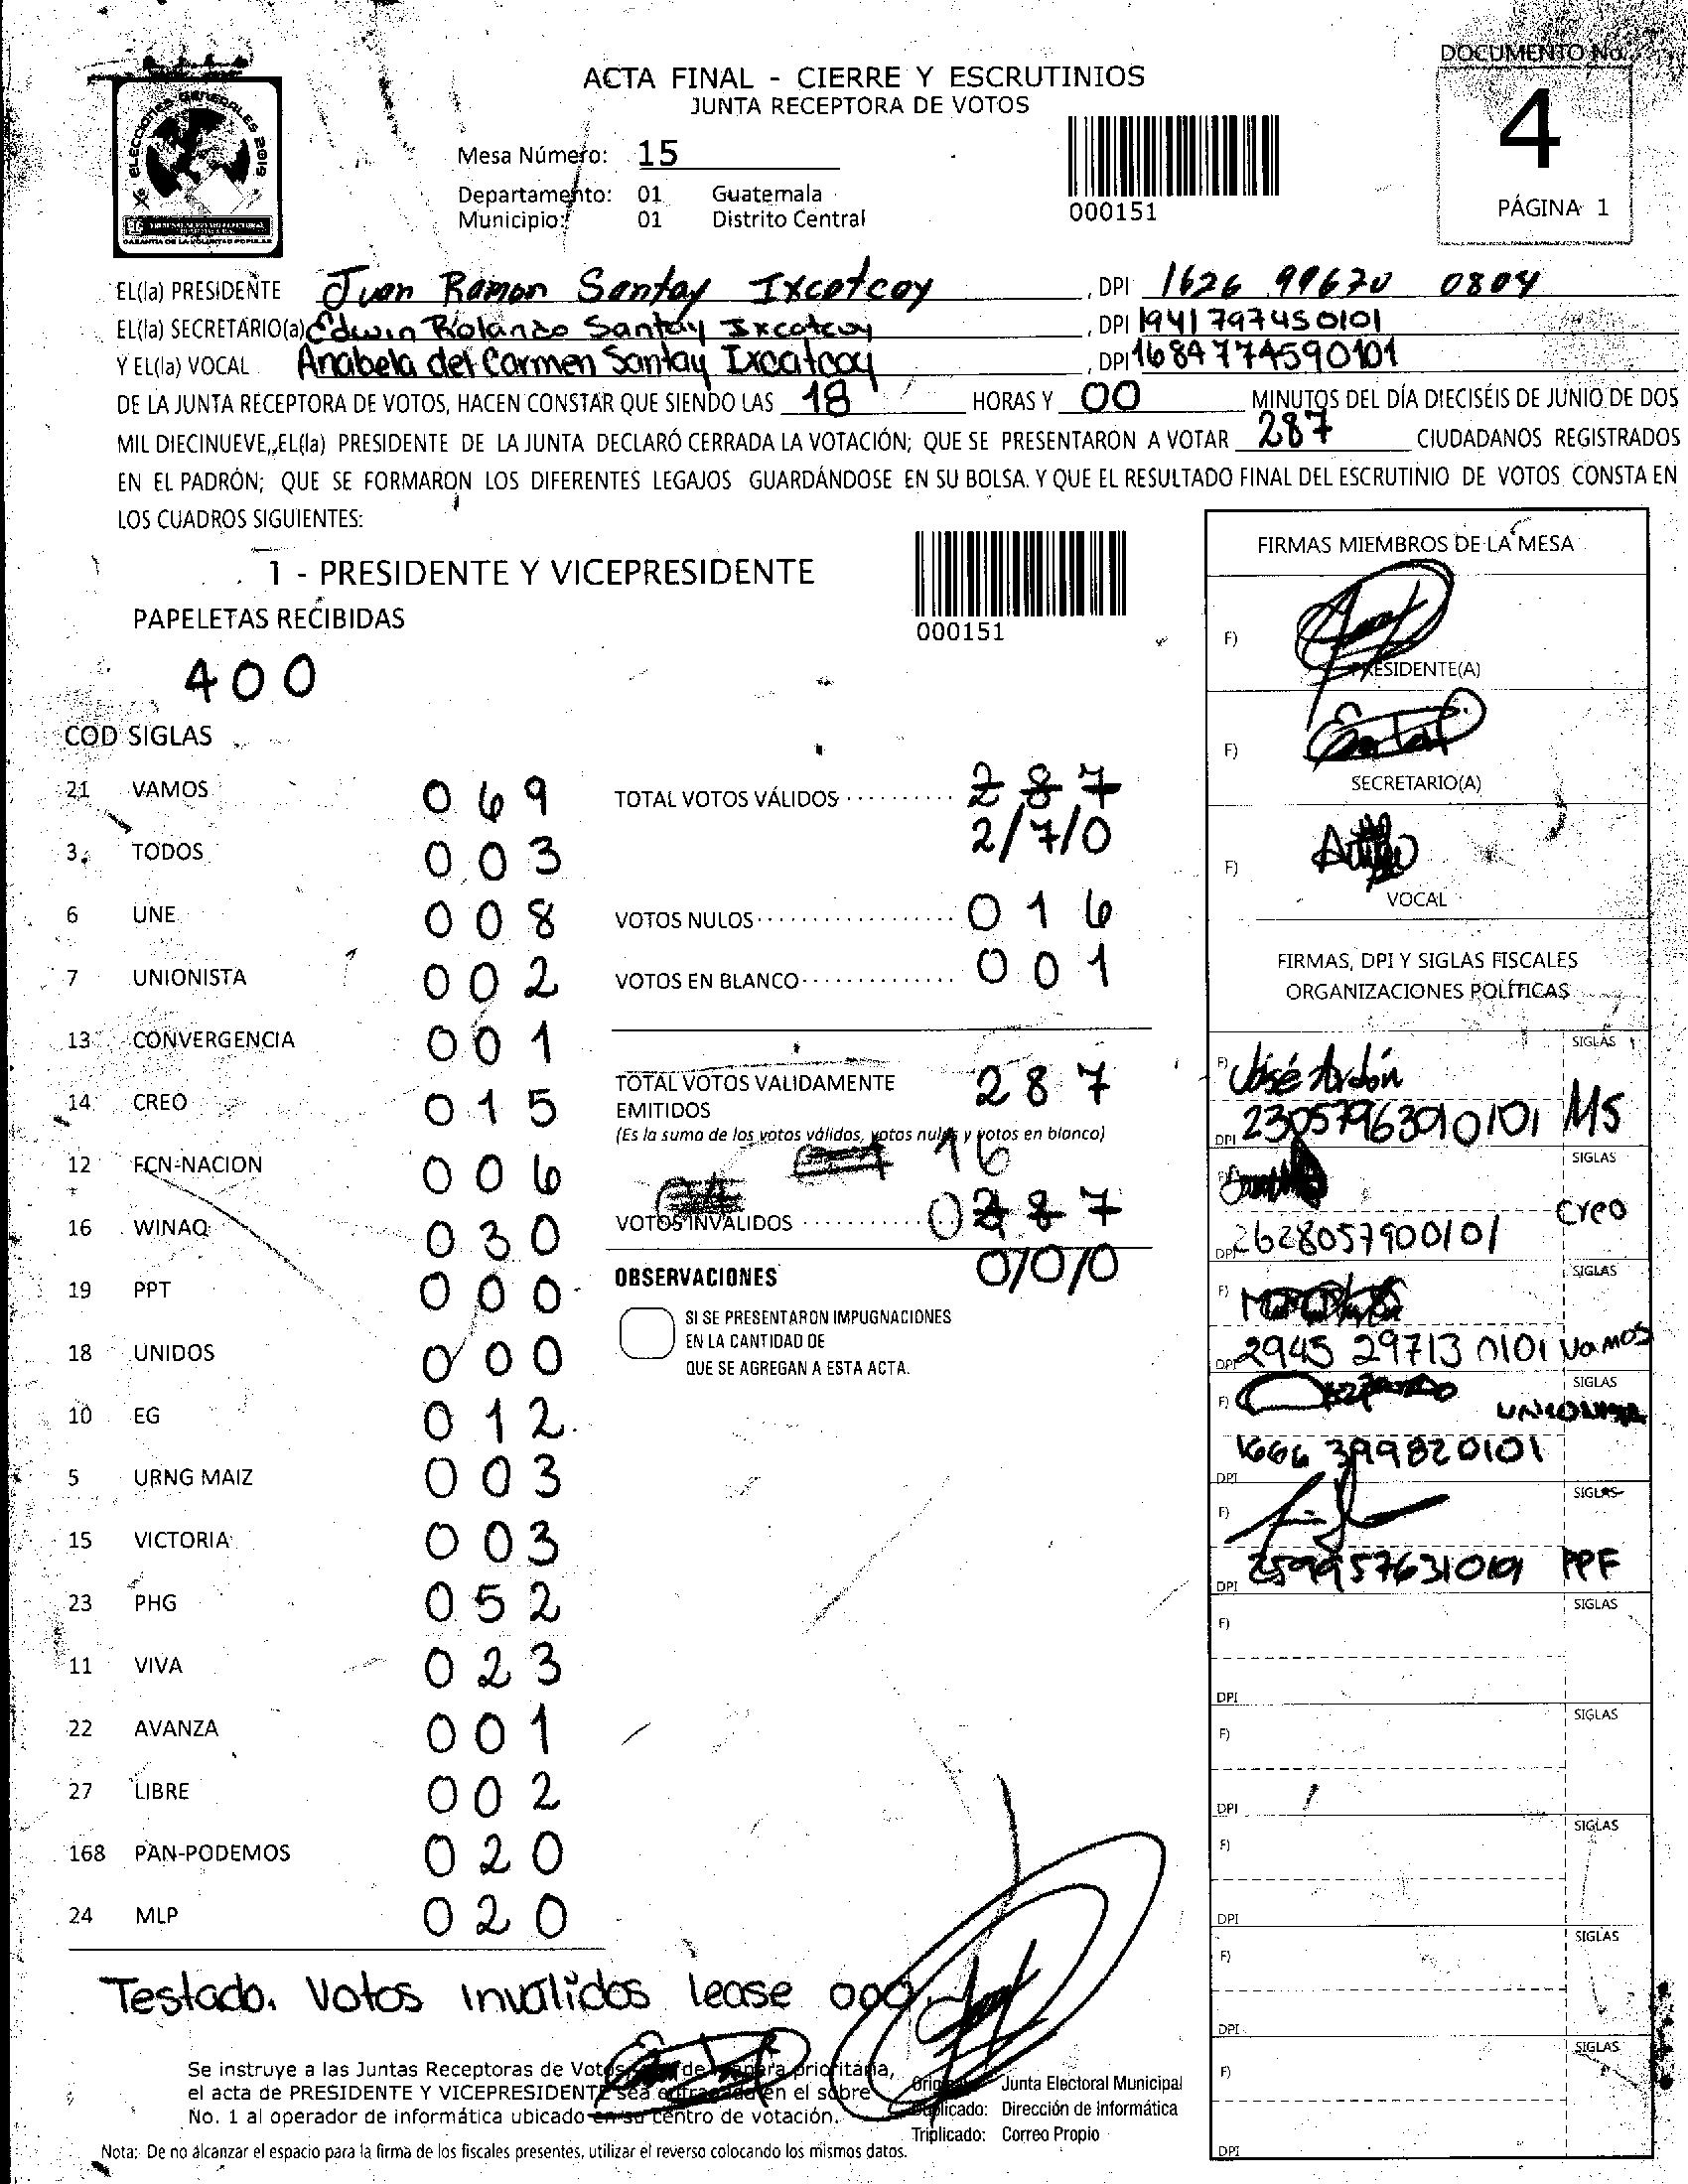 DOCUMENTO No.
4
PÁGINA 1
ACTA FINAL - CIERRE Y ESCRUTINIOS
JUNTA RECEPTORA DE VOTOS
ELECCIONES GENERALES 2019
GARANTÍA DE LA VOLUNTAD POPULAR
Mesa Número: 15
Departamento: 01 Guatemala
Municipio: 01 Distrito Central
000151
EL(la) PRESIDENTE Juan Ramon Santay Ixcatcoy , DPI 1626 99670 0804
EL(la) SECRETARIO(a) Edwin Rolando Santay Ixcatcoy , DPI 1941 797450101
Y EL(la) VOCAL Anabela del Carmen Santay Ixcatcoy , DPI 1684774590101
DE LA JUNTA RECEPTORA DE VOTOS, HACEN CONSTAR QUE SIENDO LAS 18 HORAS Y 00 MINUTOS DEL DÍA DIECISÉIS DE JUNIO DE DOS
MIL DIECINUEVE, EL(la) PRESIDENTE DE LA JUNTA DECLARÓ CERRADA LA VOTACIÓN; QUE SE PRESENTARON A VOTAR 287 CIUDADANOS REGISTRADOS
EN EL PADRÓN; QUE SE FORMARON LOS DIFERENTES LEGAJOS GUARDÁNDOSE EN SU BOLSA. Y QUE EL RESULTADO FINAL DEL ESCRUTINIO DE VOTOS CONSTA EN
LOS CUADROS SIGUIENTES:
1 - PRESIDENTE Y VICEPRESIDENTE
000151
PAPELETAS RECIBIDAS
400
COD SIGLAS
21 VAMOS 069
3 TODOS 003
6 UNE 008
7 UNIONISTA 002
13 CONVERGENCIA 001
14 CREO 015
12 FCN-NACION 006
16 WINAQ 030
19 PPT 000
18 UNIDOS 000
10 EG 012
5 URNG MAIZ 003
15 VICTORIA 003
23 PHG 052
11 VIVA 023
22 AVANZA 001
27 LIBRE 002
168 PAN-PODEMOS 020
24 MLP 020
TOTAL VOTOS VÁLIDOS 287
2/7/0
VOTOS NULOS 016
VOTOS EN BLANCO 001
TOTAL VOTOS VALIDAMENTE 287
EMITIDOS
(Es la suma de los votos válidos, votos nulos y votos en blanco)
16
VOTOS INVALIDOS 0287
0/0/0
OBSERVACIONES
SI SE PRESENTARON IMPUGNACIONES
EN LA CANTIDAD DE
QUE SE AGREGAN A ESTA ACTA.
FIRMAS MIEMBROS DE LA MESA
F)
PRESIDENTE(A)
F)
SECRETARIO(A)
F)
VOCAL
FIRMAS, DPI Y SIGLAS FISCALES
ORGANIZACIONES POLÍTICAS
SIGLAS
F) José Ardón
DPI 2305796390101 MS
SIGLAS
F)
DPI 2628057900101 Creo
SIGLAS
F)
DPI 2945 29713 0101 Vamos
SIGLAS
F) UNIONISTA
DPI 1666 399820101
SIGLAS
F)
DPI PPF
SIGLAS
F)
DPI
SIGLAS
F)
DPI
SIGLAS
F)
DPI
SIGLAS
F)
DPI
SIGLAS
F)
DPI
Testado. Votos invalidos lease 000
Se instruye a las Juntas Receptoras de Votos de manera prioritaria,
el acta de PRESIDENTE Y VICEPRESIDENTE sea entregada en el sobre
No. 1 al operador de informática ubicado en su centro de votación.
Original Junta Electoral Municipal
Duplicado: Dirección de Informática
Triplicado: Correo Propio
Nota: De no alcanzar el espacio para la firma de los fiscales presentes, utilizar el reverso colocando los mismos datos.